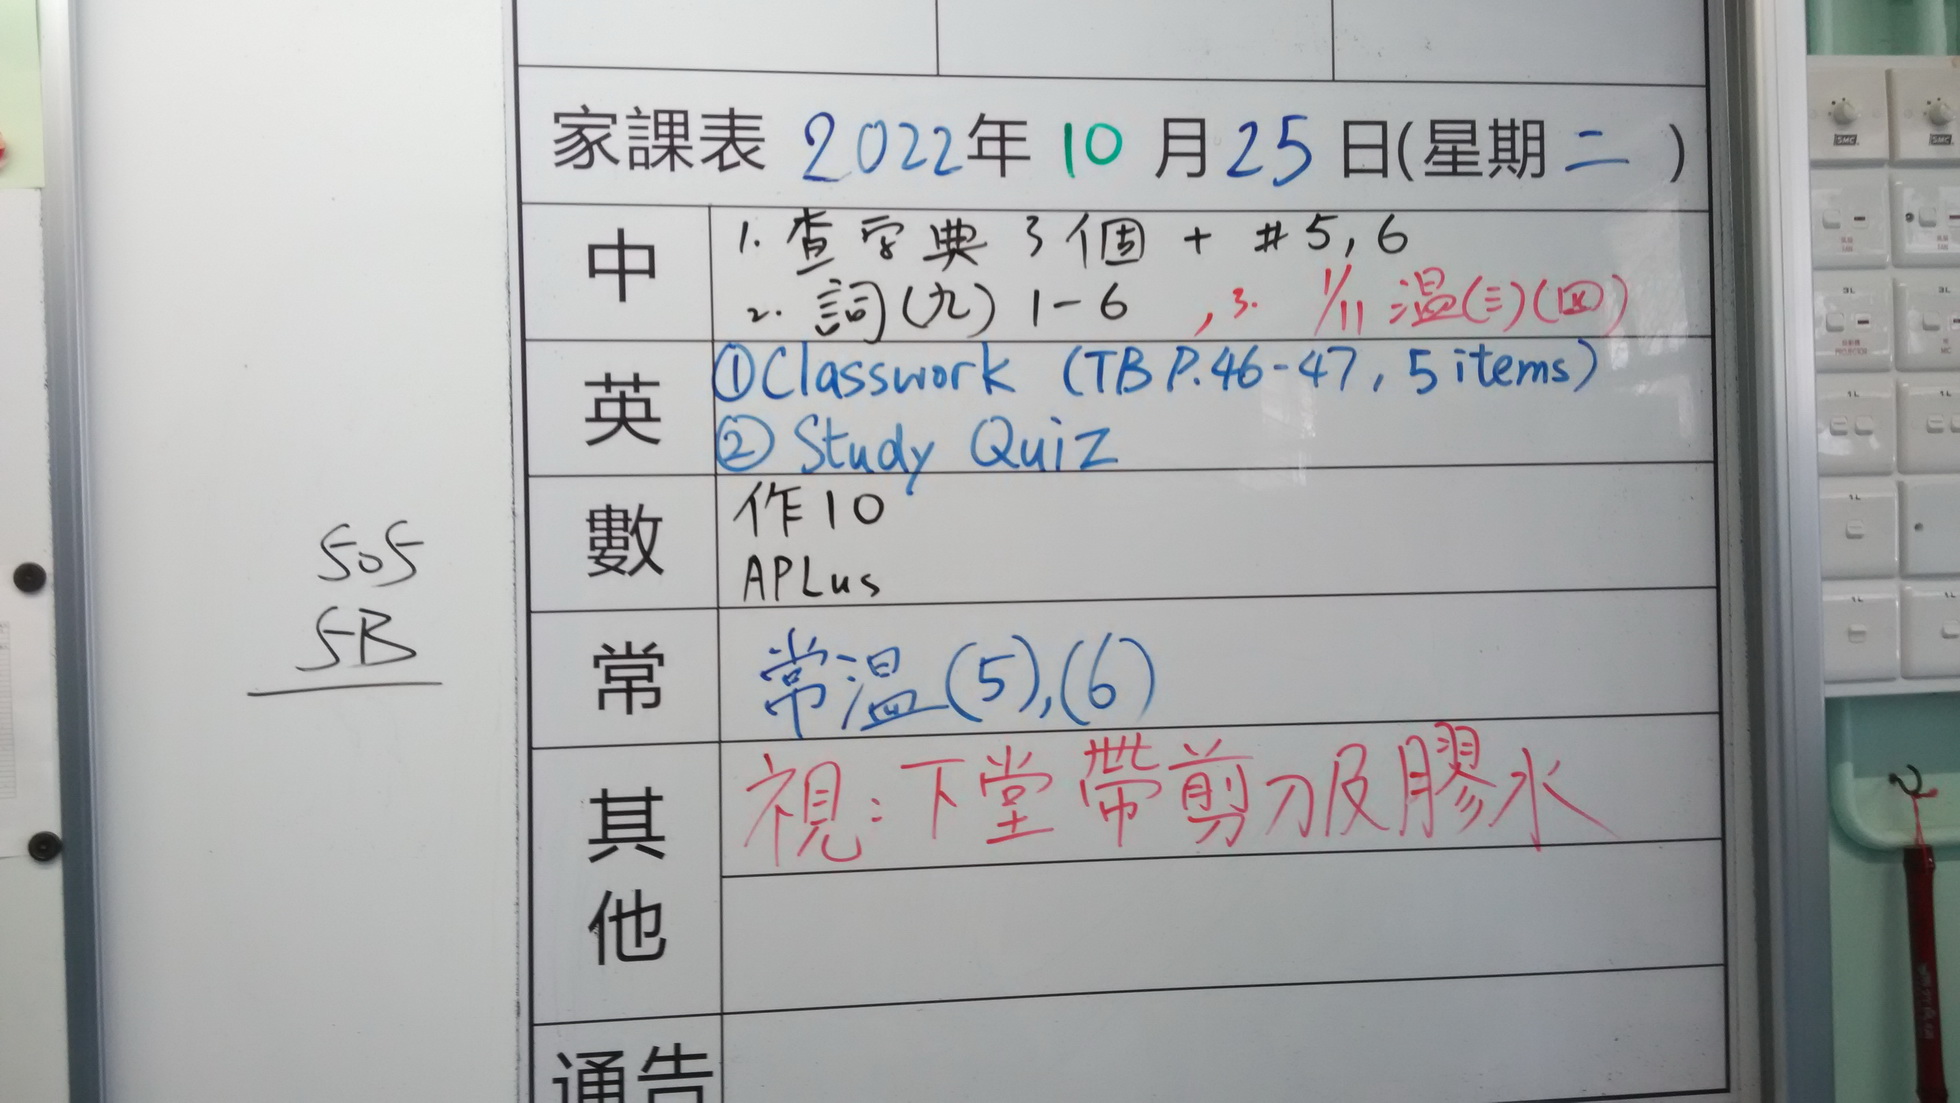 家課表 2022年 10 月 25 日(星期 二 )
中
1. 查字典 3個 + #5, 6
2. 詞(九) 1-6 , 3. 1/11 溫(三)(四)
英
①Classwork (TB P.46-47, 5 items)
② Study Quiz
數
作10
APLus
505
5B
常
常溫(5),(6)
其他
視：下堂帶剪刀及膠水
通告